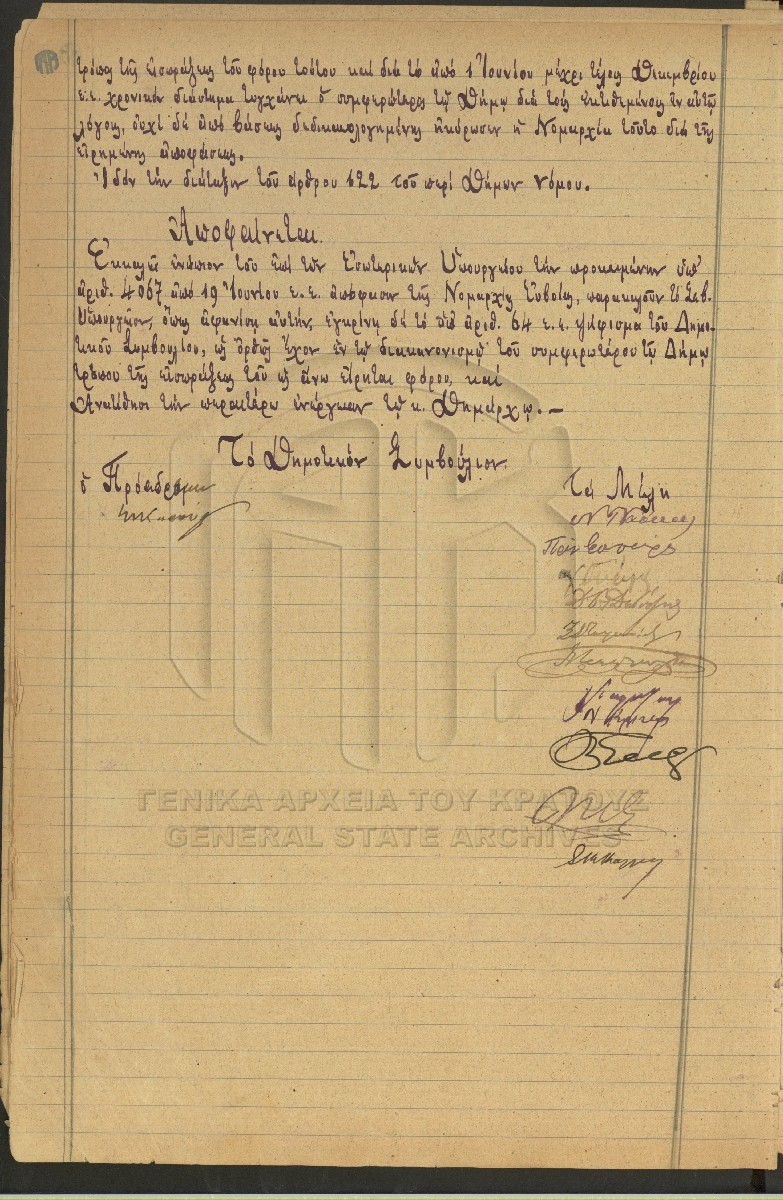 τρόπος τῆς εἰσπράξεως τοῦ φόρου τούτου καί διά τό ἀπό 1 Ἰουνίου μέχρι τέλους Δεκεμβρίου
ε.ε. χρονικόν διάστημα τυγχάνει ὁ συμφερώτερος τῷ Δήμῳ διά τούς ἐκτιθεμένους ἐν αὐτῷ
λόγους, οὐχί δέ ἀπό βάσεως δεδικαιολογημένης ἠκύρωσεν ἡ Νομαρχία τοῦτο διά τῆς
εἰρημένης ἀποφάσεως.
Ἰδόν τήν διάταξιν τοῦ ἄρθρου 122 τοῦ περί Δήμων νόμου.
Ἀποφαίνεται
Ἐκκαλεῖ ἐνώπιον τοῦ ἐπί τῶν Ἐσωτερικῶν Ὑπουργείου τήν προκειμένην ὑπ'
ἀριθ. 4067 ἀπό 19 Ἰουνίου ε.ε. ἀπόφασιν τῆς Νομαρχίας Εὐβοίας, παρακαλοῦν τό Σεβ.
Ὑπουργεῖον, ὅπως ἀφανίσῃ αὐτήν, ἐγκρίνῃ δέ τό ὑπ' ἀριθ. 64 ε.ε. ψήφισμα τοῦ Δημο-
τικοῦ Συμβουλίου, ὡς ὀρθῶς ἔχον ἐν τῷ διακανονισμῷ τοῦ συμφερωτέρου τῷ Δήμῳ
τρόπου τῆς εἰσπράξεως τοῦ ὡς ἄνω εἴρηται φόρου, καί
Ἀνατίθησι τήν περαιτέρω ἐνέργειαν τῷ κ. Δημάρχῳ. –
Τό Δημοτικόν Συμβούλιον
ὁ Πρόεδρος
Τά Μέλη
ΓΕΝΙΚΑ ΑΡΧΕΙΑ ΤΟΥ ΚΡΑΤΟΥΣ
GENERAL STATE ARCHIVES